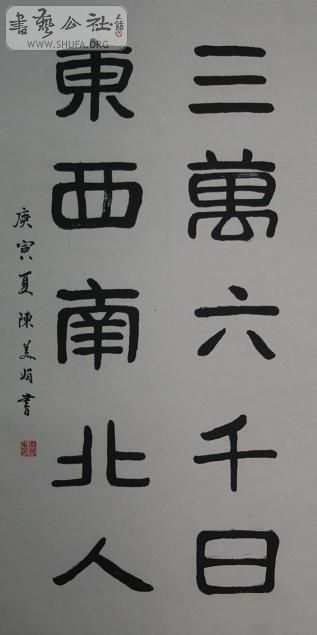 三萬六千日
東西南北人
庚寅夏陳美娟書
書藝公社
WWW.SHUFA.ORG